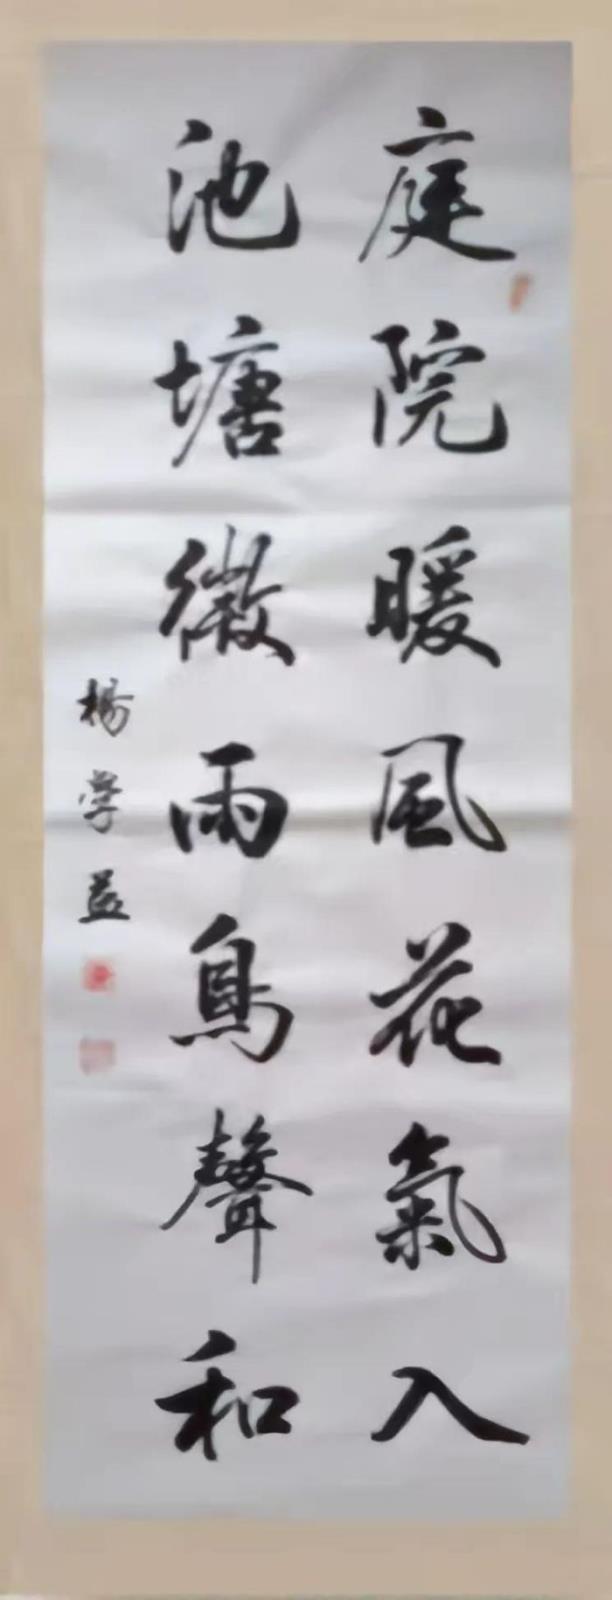 庭院暖風花氣入
池塘微雨鳥聲和
楊学益